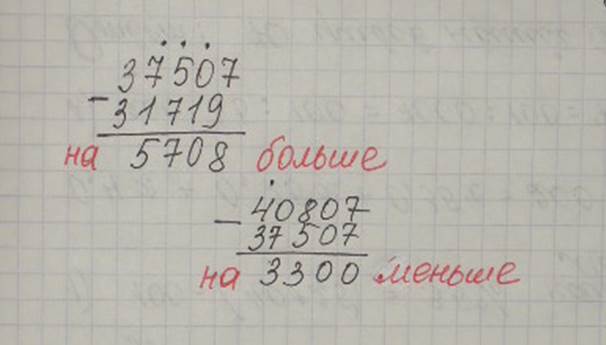 37507
- 31719
на 5708 больше
- 40807
37507
на 3300 меньше